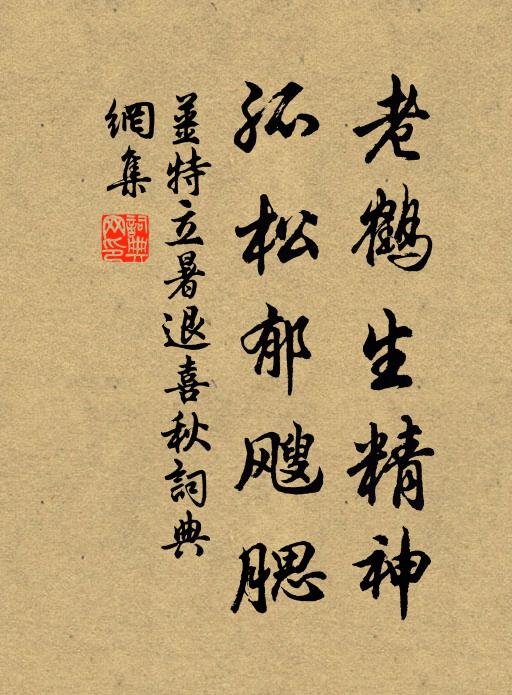 老鹤生精神
孤松郁飕腮
姜特立暑退喜秋詞典
網集
詞典
网印